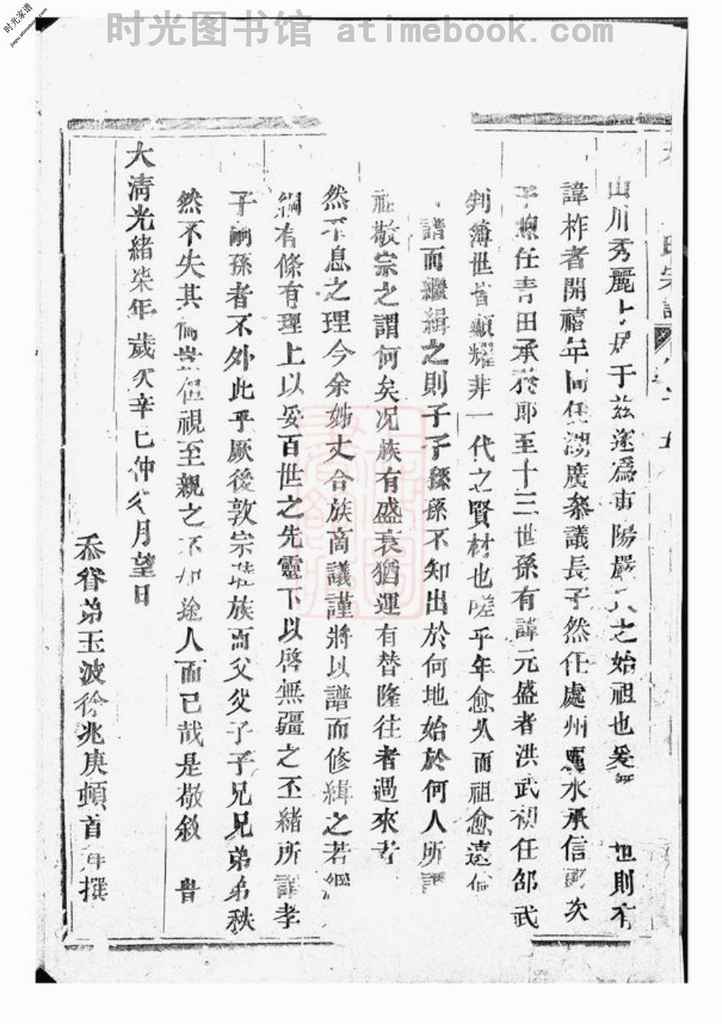 时光图书馆 atimebook.com
时光家谱
氏宗譜
山川秀麗卜于茲遂爲東陽嚴之始祖也爰 則有
諱柞者開禧年間任湖廣叅議長子然任處州麗水承信郎次
子 任青田承務郎至十三世孫有諱元盛者洪武初任邵武
判簿世皆顯耀非一代之賢材也嗟乎年愈久而祖愈遠
譜而繼緝之則子子孫孫不知出於何地始於何人所謂
祖敬宗之謂何矣况族有盛衰猶運有替隆往者過來者
然不息之理今余姊丈合族商議謹將以譜而修緝之若網
綱有條有理上以妥百世之先靈下以啓無疆之丕緒所謂孝
子嗣孫者不外此乎厥後敦宗 族而父父子子兄兄弟弟秩
然不失其倫豈但視至親之不如途人而已哉是敬敘 旹
大淸光緒柒年歲次辛巳仲冬月望日
忝眷弟玉波徐兆庚頓首拜撰